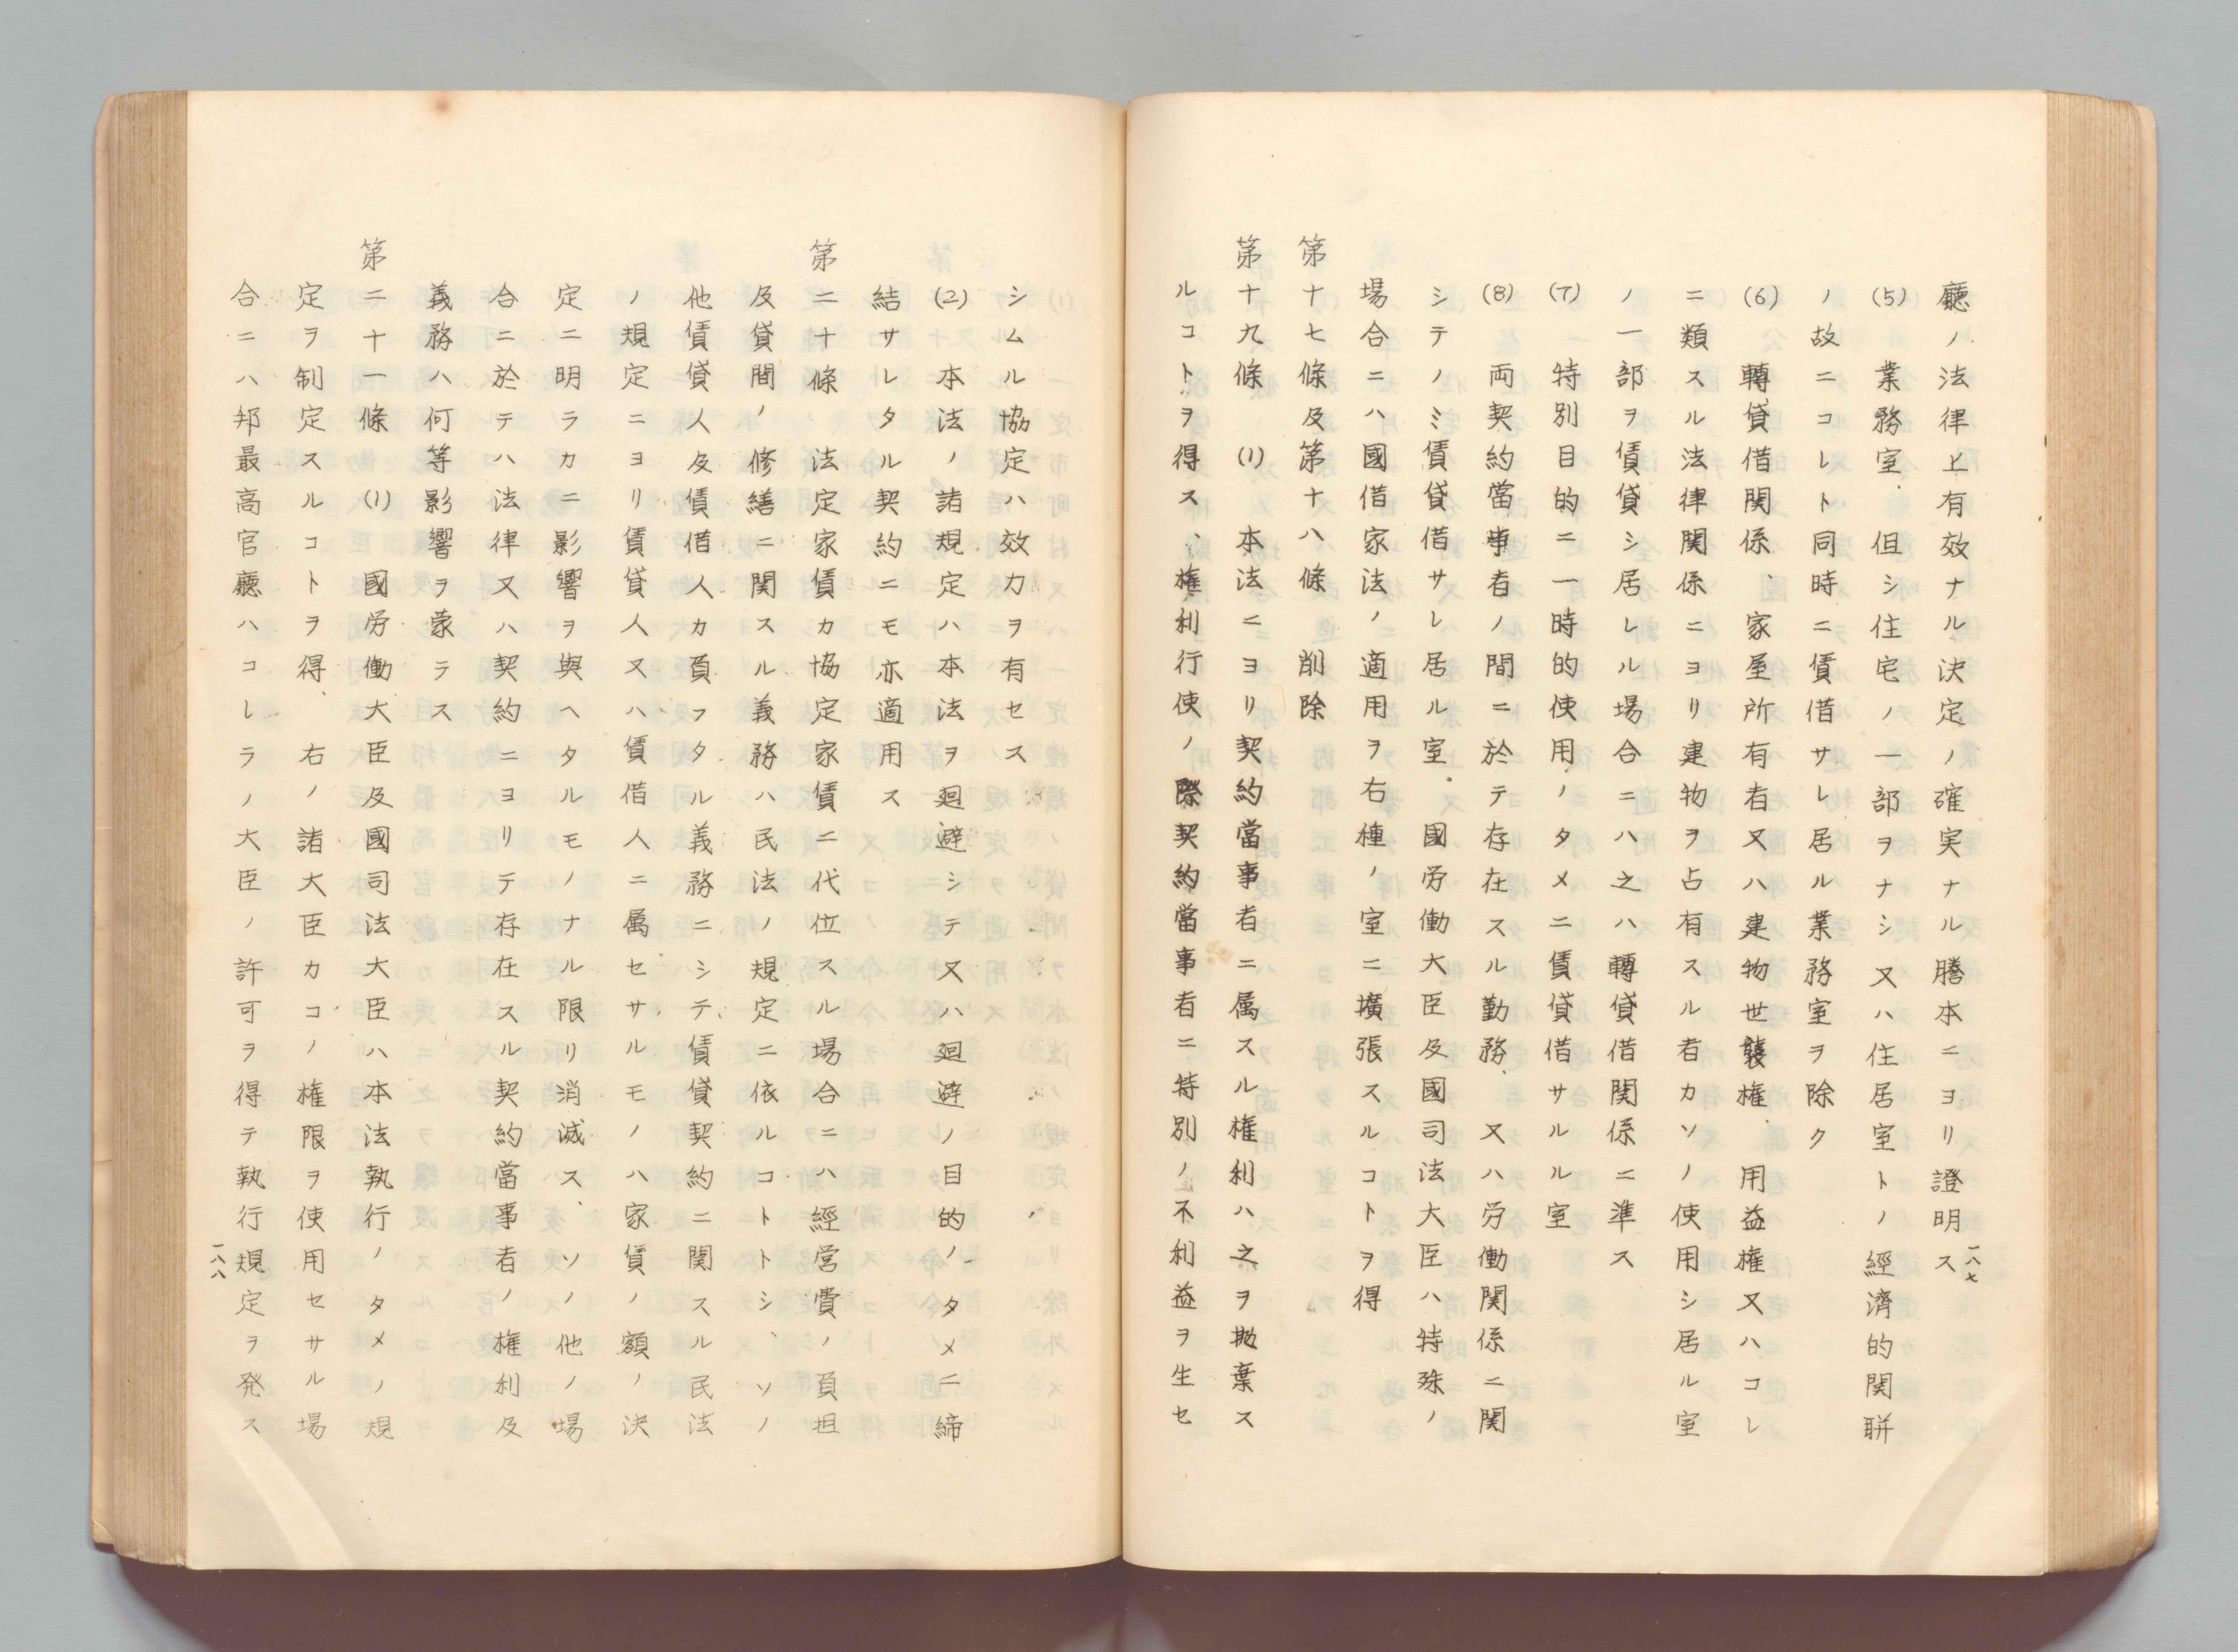 廳ノ法律上有效ナル決定ノ確実ナル謄本ニヨリ證明ス
(5) 業務室、但シ住宅ノ一部ヲナシ又ハ住居室トノ經濟的関聯
ノ故ニコレト同時ニ賃借サレ居ル業務室ヲ除ク
(6) 轉貸借関係、家屋所有者又ハ建物世襲権、用益権又ハコレ
ニ類スル法律関係ニヨリ建物ヲ占有スル者カソノ使用シ居ル室
ノ一部ヲ賃貸シ居レル場合ニハ之ハ轉貸借関係ニ準ス
(7) 特別目的ニ一時的使用ノタメニ賃貸借サルル室
(8) 両契約當事者ノ間ニ於テ存在スル勤務、又ハ労働関係ニ関
シテノミ賃貸借サレ居ル室。國労働大臣及國司法大臣ハ特殊ノ
場合ニハ國借家法ノ適用ヲ右種ノ室ニ擴張スルコトヲ得
第十七條及第十八條 削除
第十九條 (1) 本法ニヨリ契約當事者ニ属スル権利ハ之ヲ抛棄ス
ルコトヲ得ス、権利行使ノ際契約當事者ニ特別ノ不利益ヲ生セ
一八七
シムル協定ハ效力ヲ有セス
(2) 本法ノ諸規定ハ本法ヲ廻避シテ又ハ廻避ノ目的ノタメニ締
結サレタル契約ニモ亦適用ス
第二十條 法定家賃カ協定家賃ニ代位スル場合ニハ經営費ノ負担
及貸間ノ修繕ニ関スル義務ハ民法ノ規定ニ依ルコトトシ、ソノ
他賃貸人及賃借人カ負フタル義務ニシテ、賃貸契約ニ関スル民法
ノ規定ニヨリ賃貸人又ハ賃借人ニ属セサルモノハ家賃ノ額ノ決
定ニ明ラカニ影響ヲ與ヘタルモノナル限リ消滅ス、ソノ他ノ場
合ニ於テハ法律又ハ契約ニヨリテ存在スル契約當事者ノ権利及
義務ハ何等影響ヲ蒙ラス
第二十一條 (1) 國労働大臣及國司法大臣ハ本法執行ノタメノ規
定ヲ制定スルコトヲ得 右ノ諸大臣カコノ権限ヲ使用セサル場
合ニハ邦最高官廳ハコレラノ大臣ノ許可ヲ得テ執行規定ヲ発ス
一八八